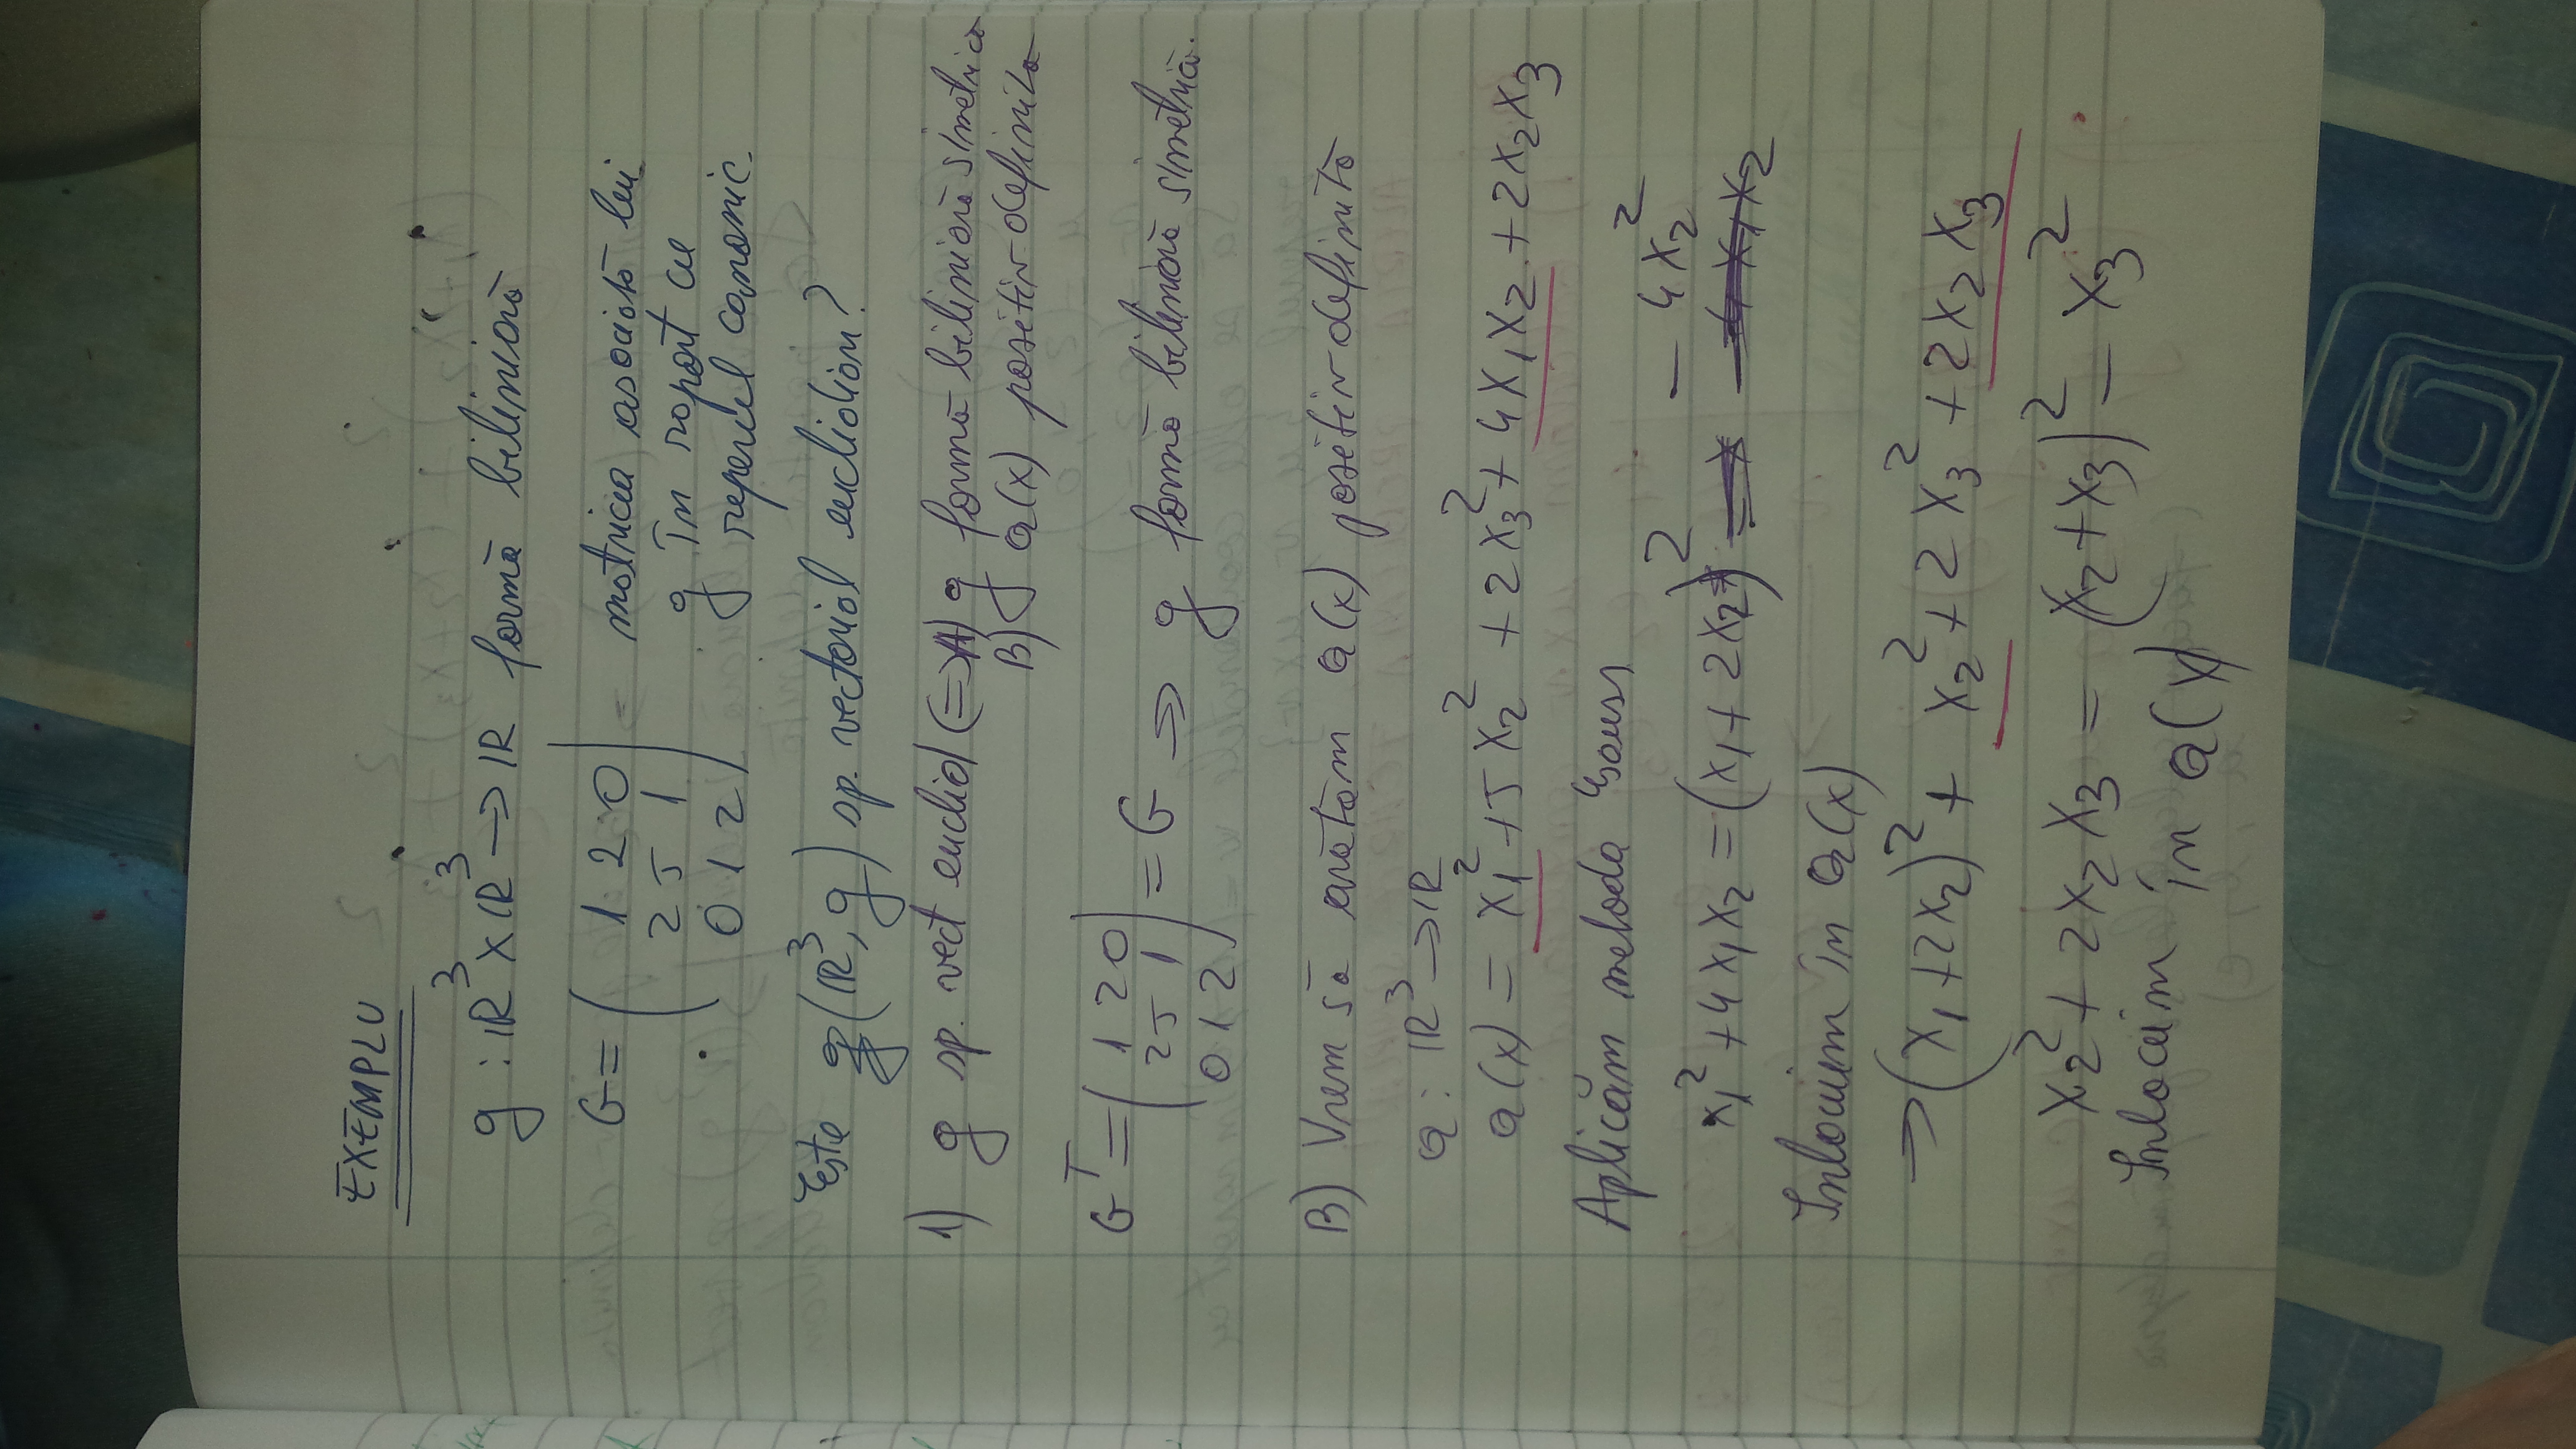 EXEMPLU
g : ℝ³ × ℝ³ → ℝ formă biliniară
G = ( 1 2 0 = matricea asociată lui
2 5 1 g în raport cu
0 1 2 ) reperul canonic.
Este (ℝ³, g) sp. vectorial euclidian?
1) g sp. vect euclid (=> A) g formă biliniară simetrică
B) Q(x) pozitiv definită
G^T = ( 1 2 0
2 5 1 = G => g formă biliniară simetrică.
0 1 2 )
B) Vrem să arătăm Q(x) pozitiv definită
Q : ℝ³ → ℝ
Q(x) = x₁² + 5x₂² + 2x₃² + 4x₁x₂ + 2x₂x₃
Aplicăm metoda Gauss
x₁² + 4x₁x₂ = (x₁ + 2x₂)² - 4x₂²
Inlocuim în Q(x)
=> (x₁ + 2x₂)² + x₂² + 2x₃² + 2x₂x₃
x₂² + 2x₂x₃ = (x₂ + x₃)² - x₃²
Inlocuim în Q(x)